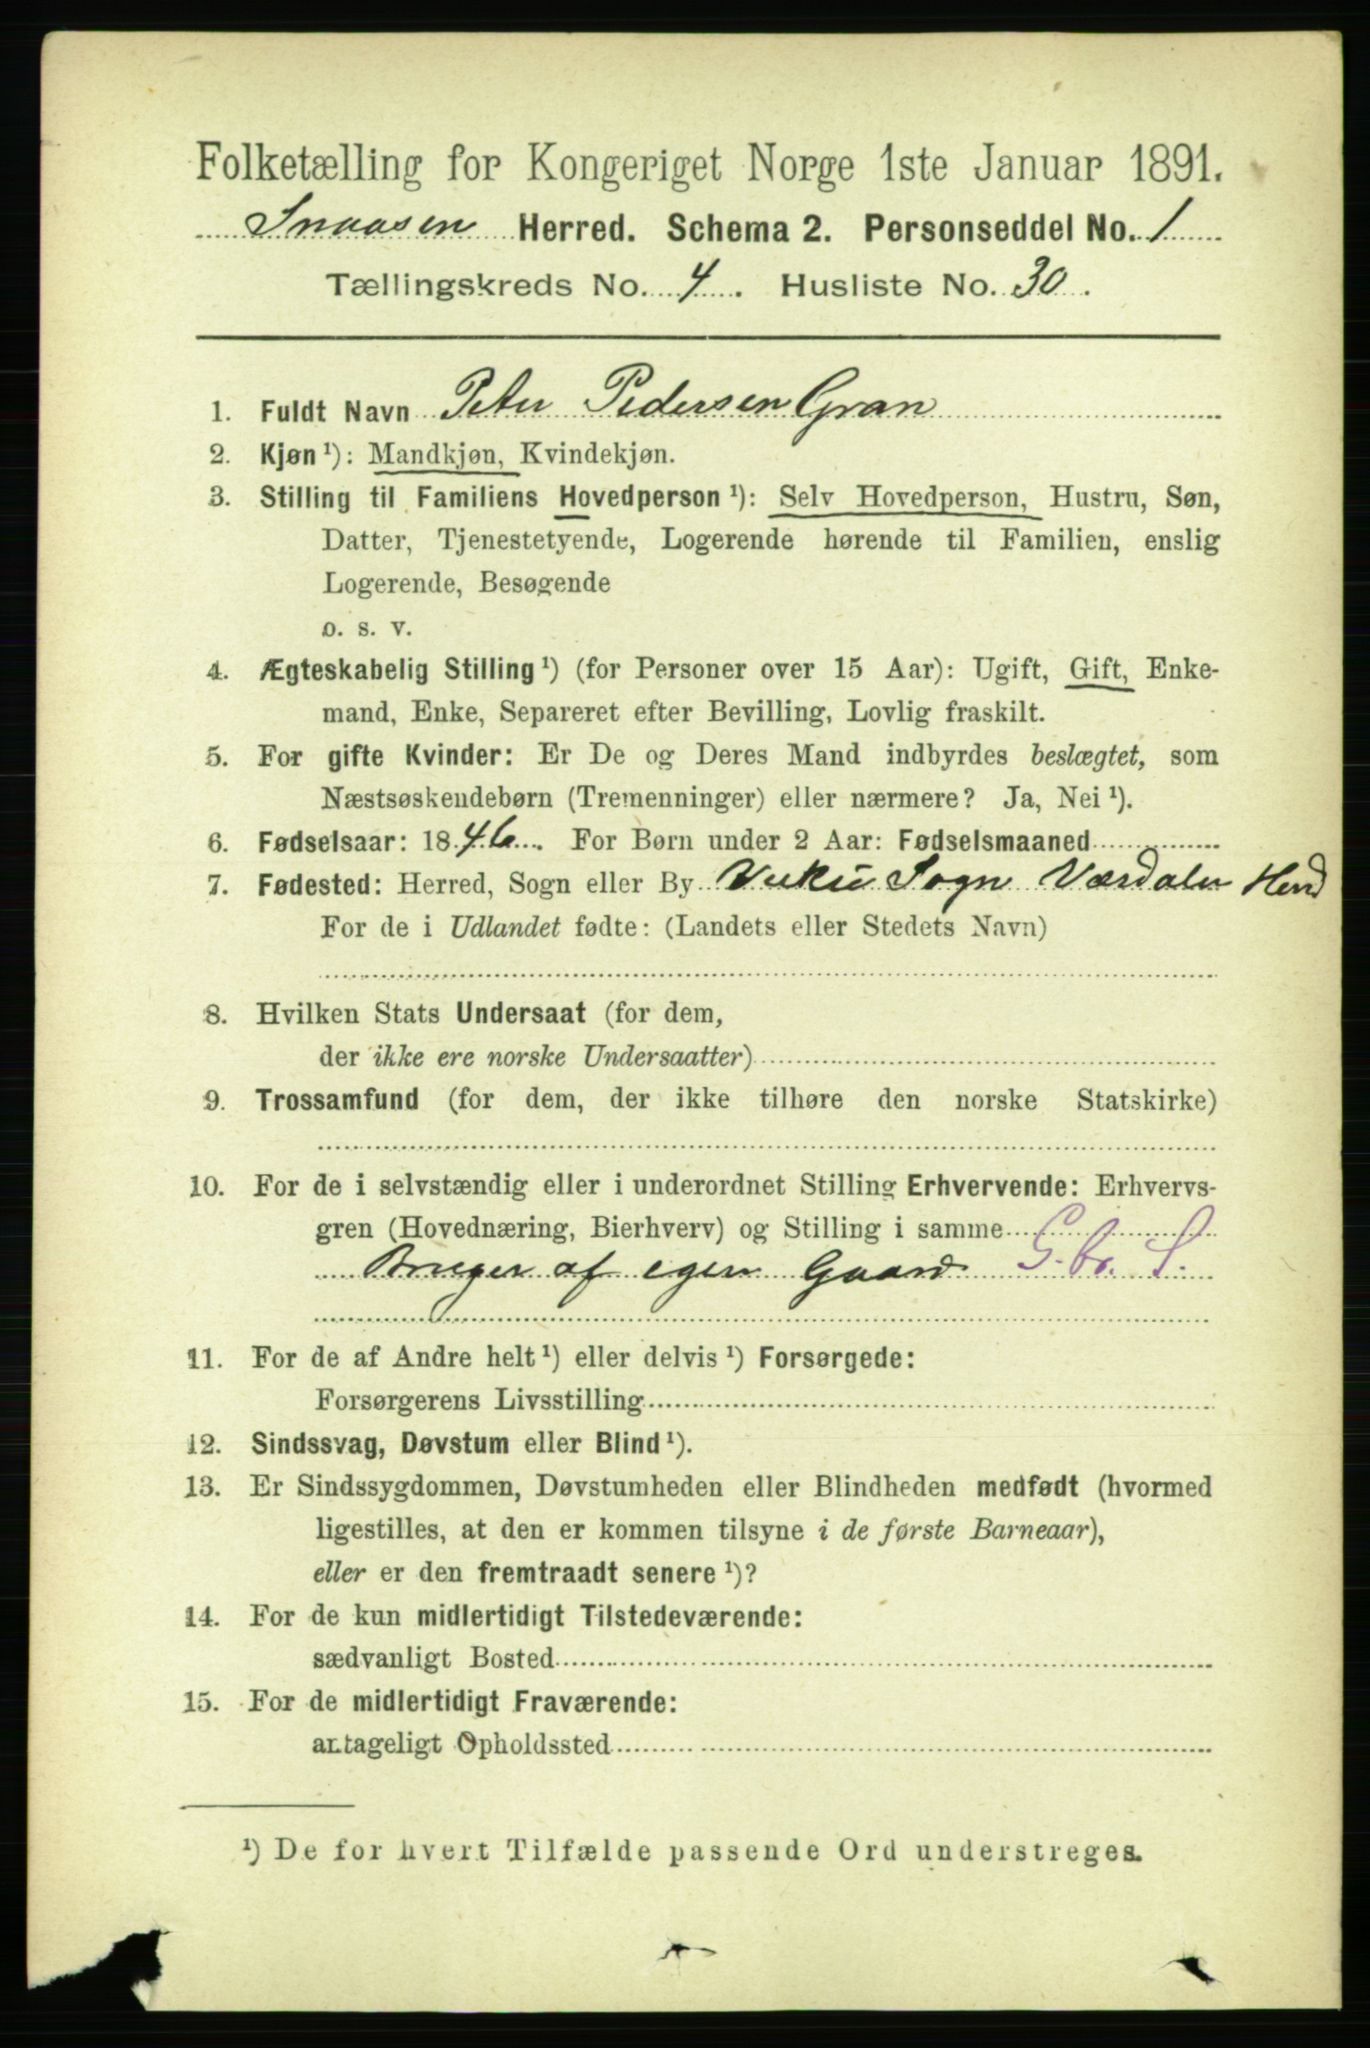 Folketælling for Kongeriget Norge 1ste Januar 1891.
Snaasen Herred. Schema 2. Personseddel No. 1
Tællingskreds No. 4. Husliste No. 30.
1. Fuldt Navn Peter Pedersen Gran
2. Kjøn ¹): Mandkjøn, Kvindekjøn.
3. Stilling til Familiens Hovedperson ¹): Selv Hovedperson, Hustru, Søn,
Datter, Tjenestetyende, Logerende hørende til Familien, enslig
Logerende, Besøgende
o. s. v.
4. Ægteskabelig Stilling ¹) (for Personer over 15 Aar): Ugift, Gift, Enke-
mand, Enke, Separeret efter Bevilling, Lovlig fraskilt.
5. For gifte Kvinder: Er De og Deres Mand indbyrdes beslægtet, som
Næstsøskendebørn (Tremenninger) eller nærmere? Ja, Nei ¹).
6. Fødselsaar: 1846. For Børn under 2 Aar: Fødselsmaaned
7. Fødested: Herred, Sogn eller By Sogn Værdalen Herd
For de i Udlandet fødte: (Landets eller Stedets Navn)
8. Hvilken Stats Undersaat (for dem,
der ikke ere norske Undersaatter)
9. Trossamfund (for dem, der ikke tilhøre den norske Statskirke)
10. For de i selvstændig eller i underordnet Stilling Erhvervende: Erhvervs-
gren (Hovednæring, Bierhverv) og Stilling i samme
Bruger af egen Gaard G. br. S.
11. For de af Andre helt ¹) eller delvis ¹) Forsørgede:
Forsørgerens Livsstilling
12. Sindssvag, Døvstum eller Blind ¹).
13. Er Sindssygdommen, Døvstumheden eller Blindheden medfødt (hvormed
ligestilles, at den er kommen tilsyne i de første Barneaar),
eller er den fremtraadt senere ¹)?
14. For de kun midlertidigt Tilstedeværende:
sædvanligt Bosted
15. For de midlertidigt Fraværende:
antageligt Opholdssted
¹) De for hvert Tilfælde passende Ord understreges.